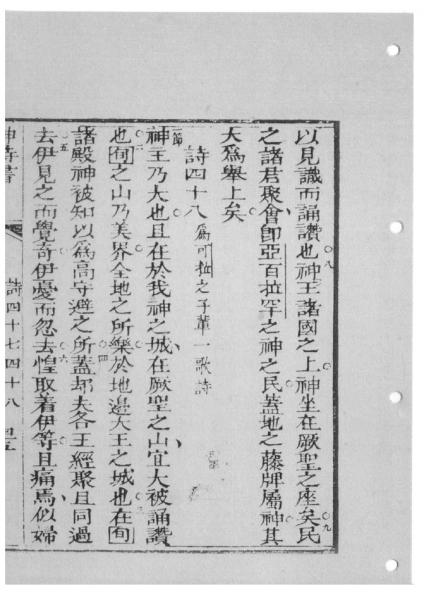 以見識而誦讚也神王諸國之上八神坐在厥聖之座矣九民
之諸君聚會卽亞百拉罕之神之民蓋地之藤牌屬神其
大爲舉上矣
詩四十八 爲可拉之子輩一歌詩
一節神王乃大也且在於我神之城在厥聖之山宜大被誦讚
也二旬之山乃美界全地之所樂於地邊大王之城也三在旬
諸殿神被知以爲高守避之所四蓋却夫各王經聚且同過
去五伊見之而覺奇伊憂而忽去六惶取着伊等且痛焉似婦
詩四十七四十八